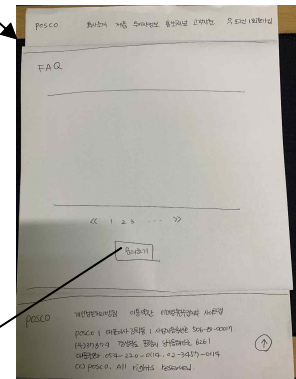 posco 회사소개 제품 투자자정보 홍보센터 고객지원 로그인 | 회원가입
FAQ
<< 1 2 3 ... >>
문의하기
posco 개인정보처리방침 이용약관 이메일무단수집거부 사이트맵
posco | 대표이사 | 사업자등록번호 506-81-00017
(우)37859 경상북도 포항시 남구 6261
대표전화: 054-220-0114, 02-3457-0114
(c) posco. All rights reserved